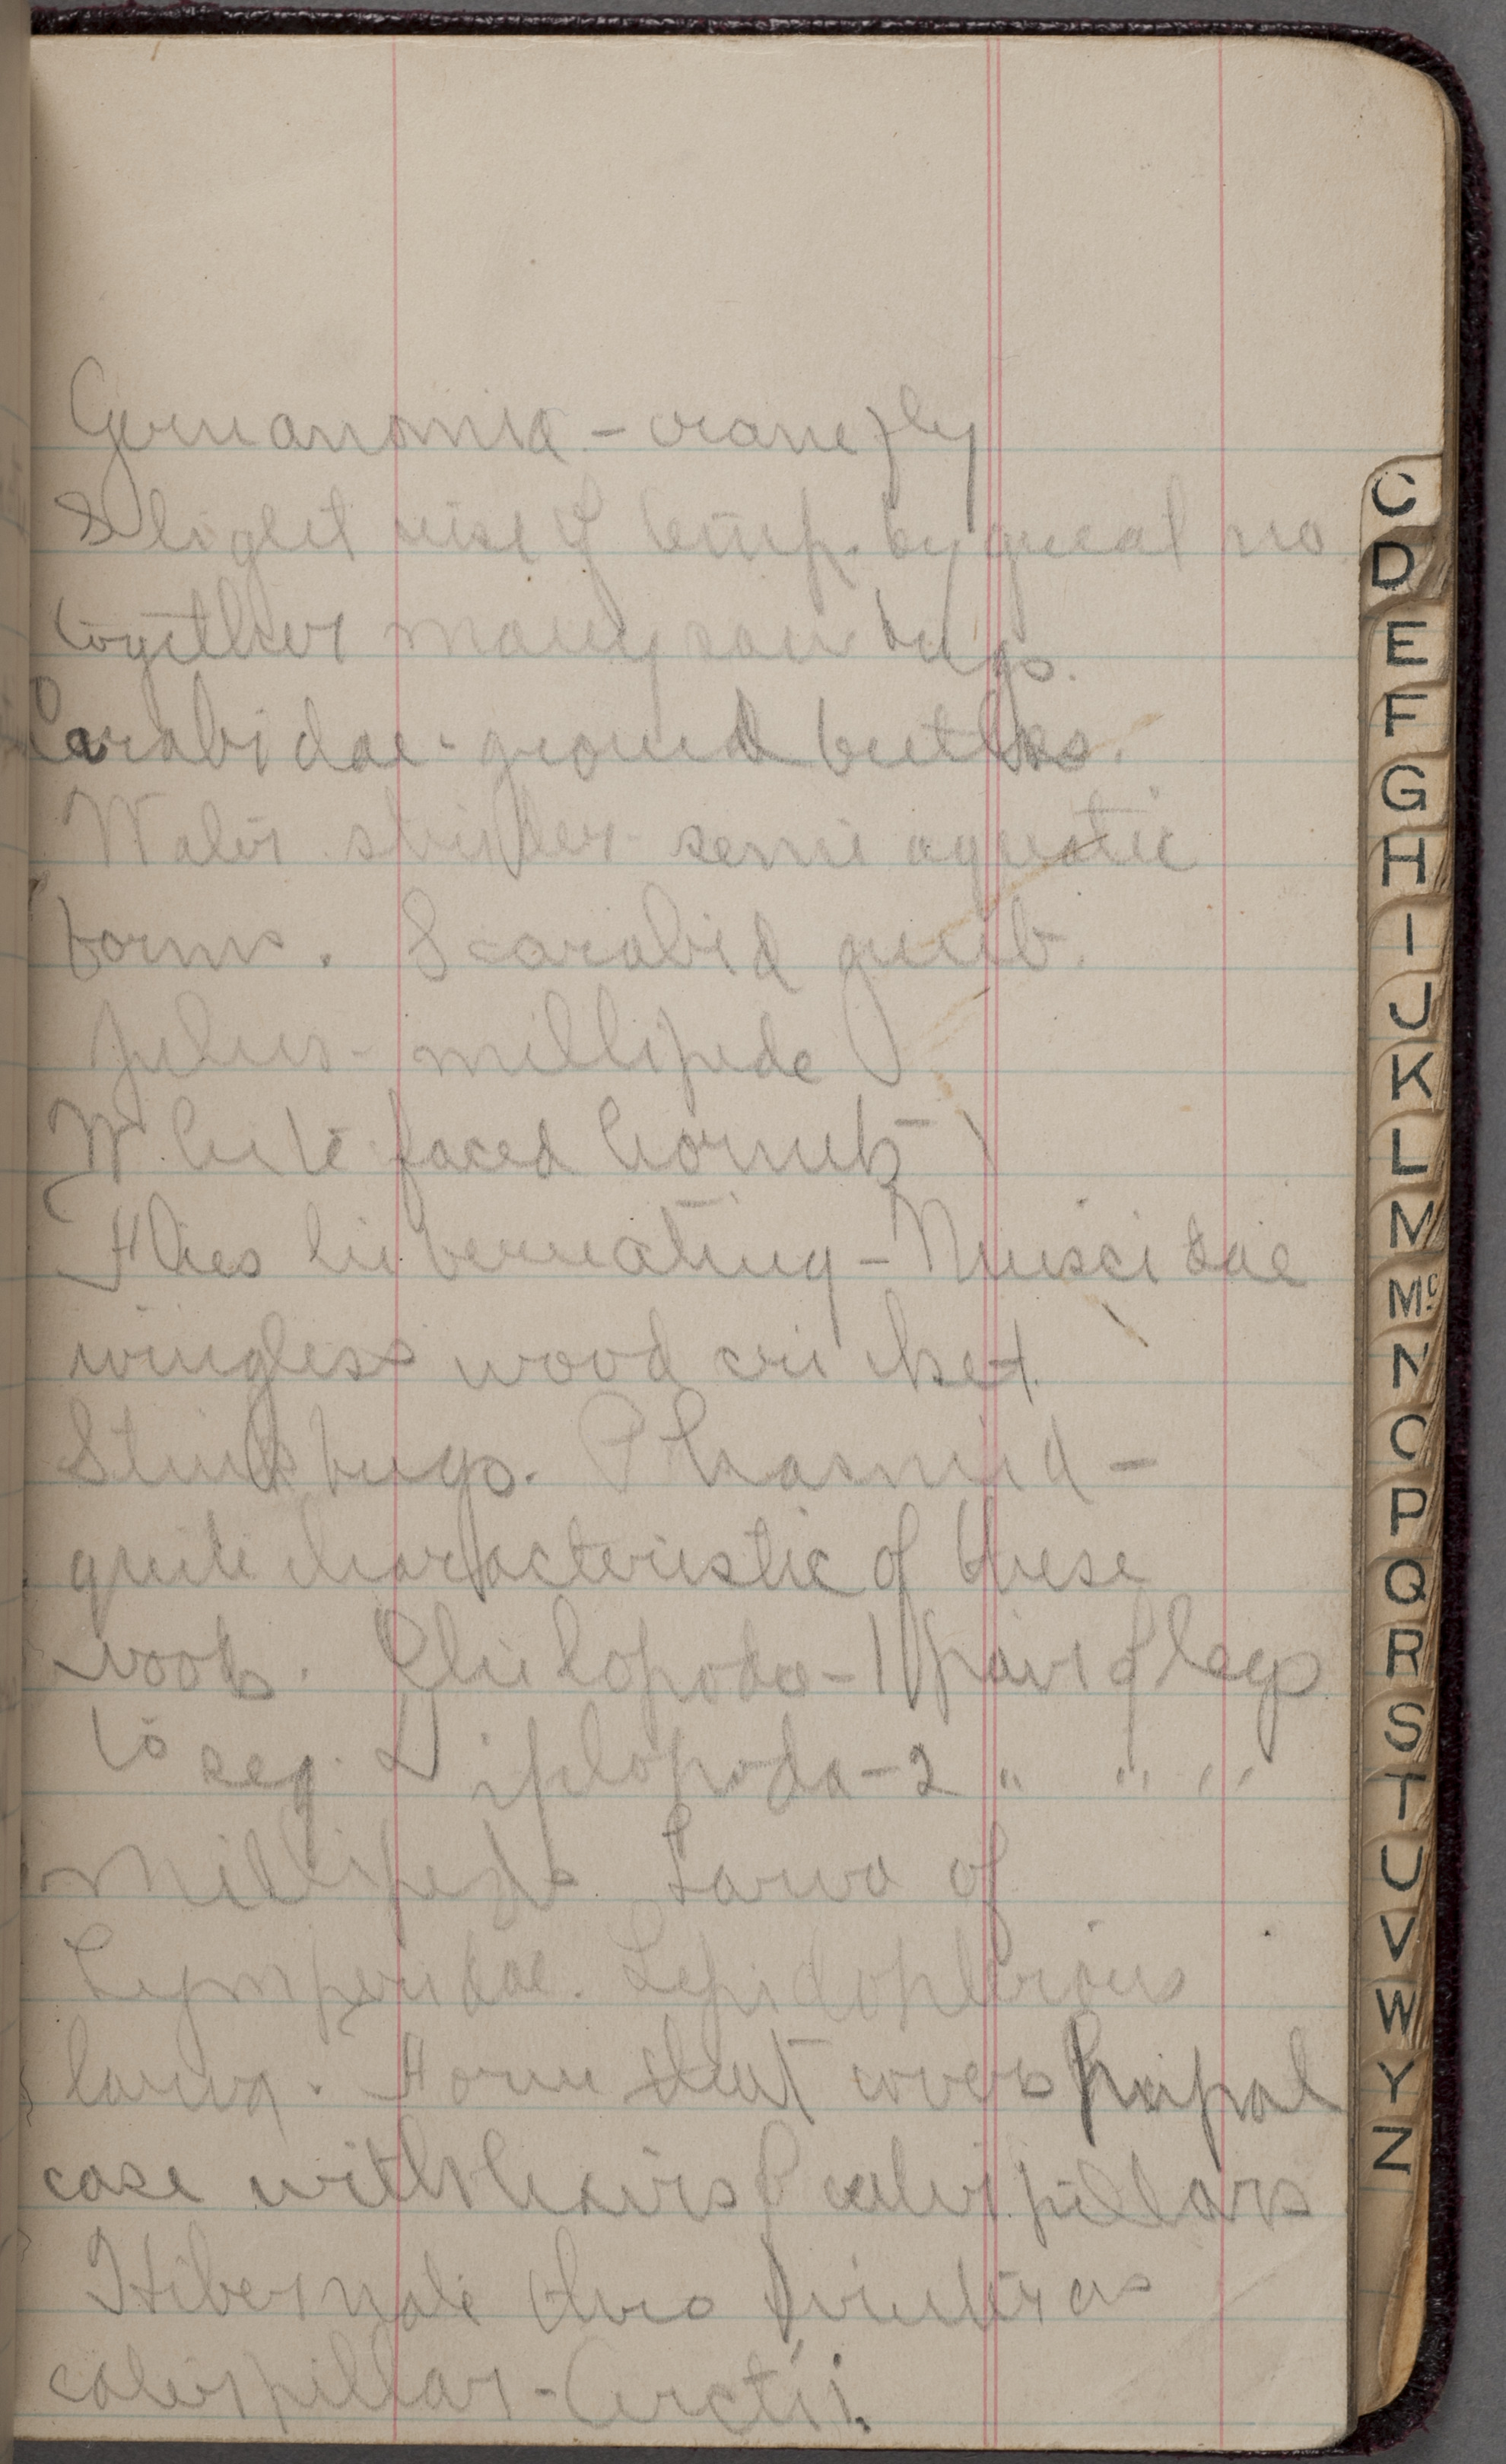 crane fly
Slight rise of temp. by great no
together many sow bugs.
Carabidae - ground beetles.
Water strider - semi aquatic
forms. Scarabid grub.
Julus - millipede
White faced hornets
Flies hibernating - Muscidae
wingless wood cricket
Stink bugs. Phasmid -
quite characteristic of these
woods. Chilopoda - 1 pair of legs
to seg. Diplopoda - 2 " " "
Millipeds Larva of
Lepidopterous
larva. Form that covers pupal
case with hairs of caterpillars
Hibernate thro winter as
caterpillar - Arctii.
C
D
E
F
G
H
I
J
K
L
M
Mc
N
O
P
Q
R
S
T
U
V
W
Y
Z